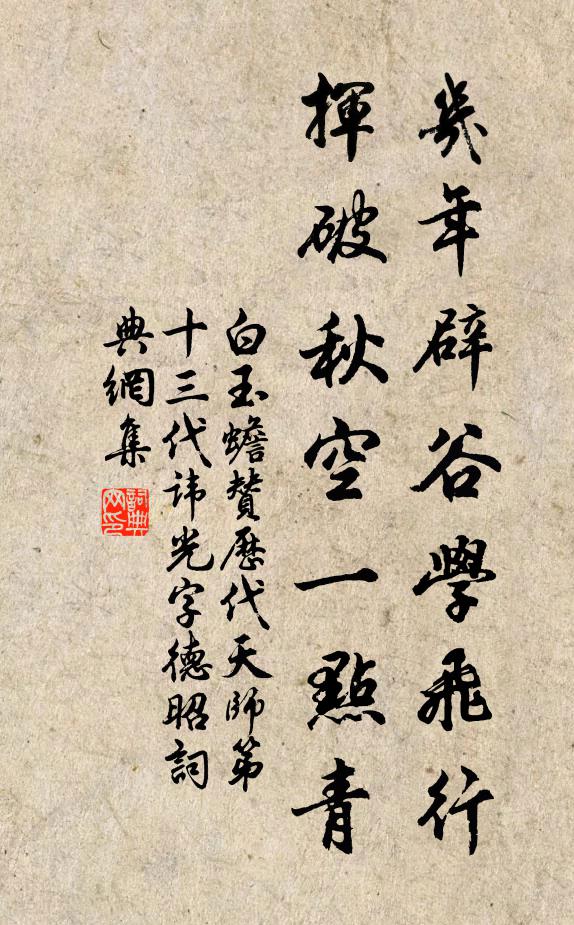 幾年辟谷學飛行
揮破秋空一點青
白玉蟾贊歷代天師第
十三代諱光字德昭詞
典網集
詞典
网印